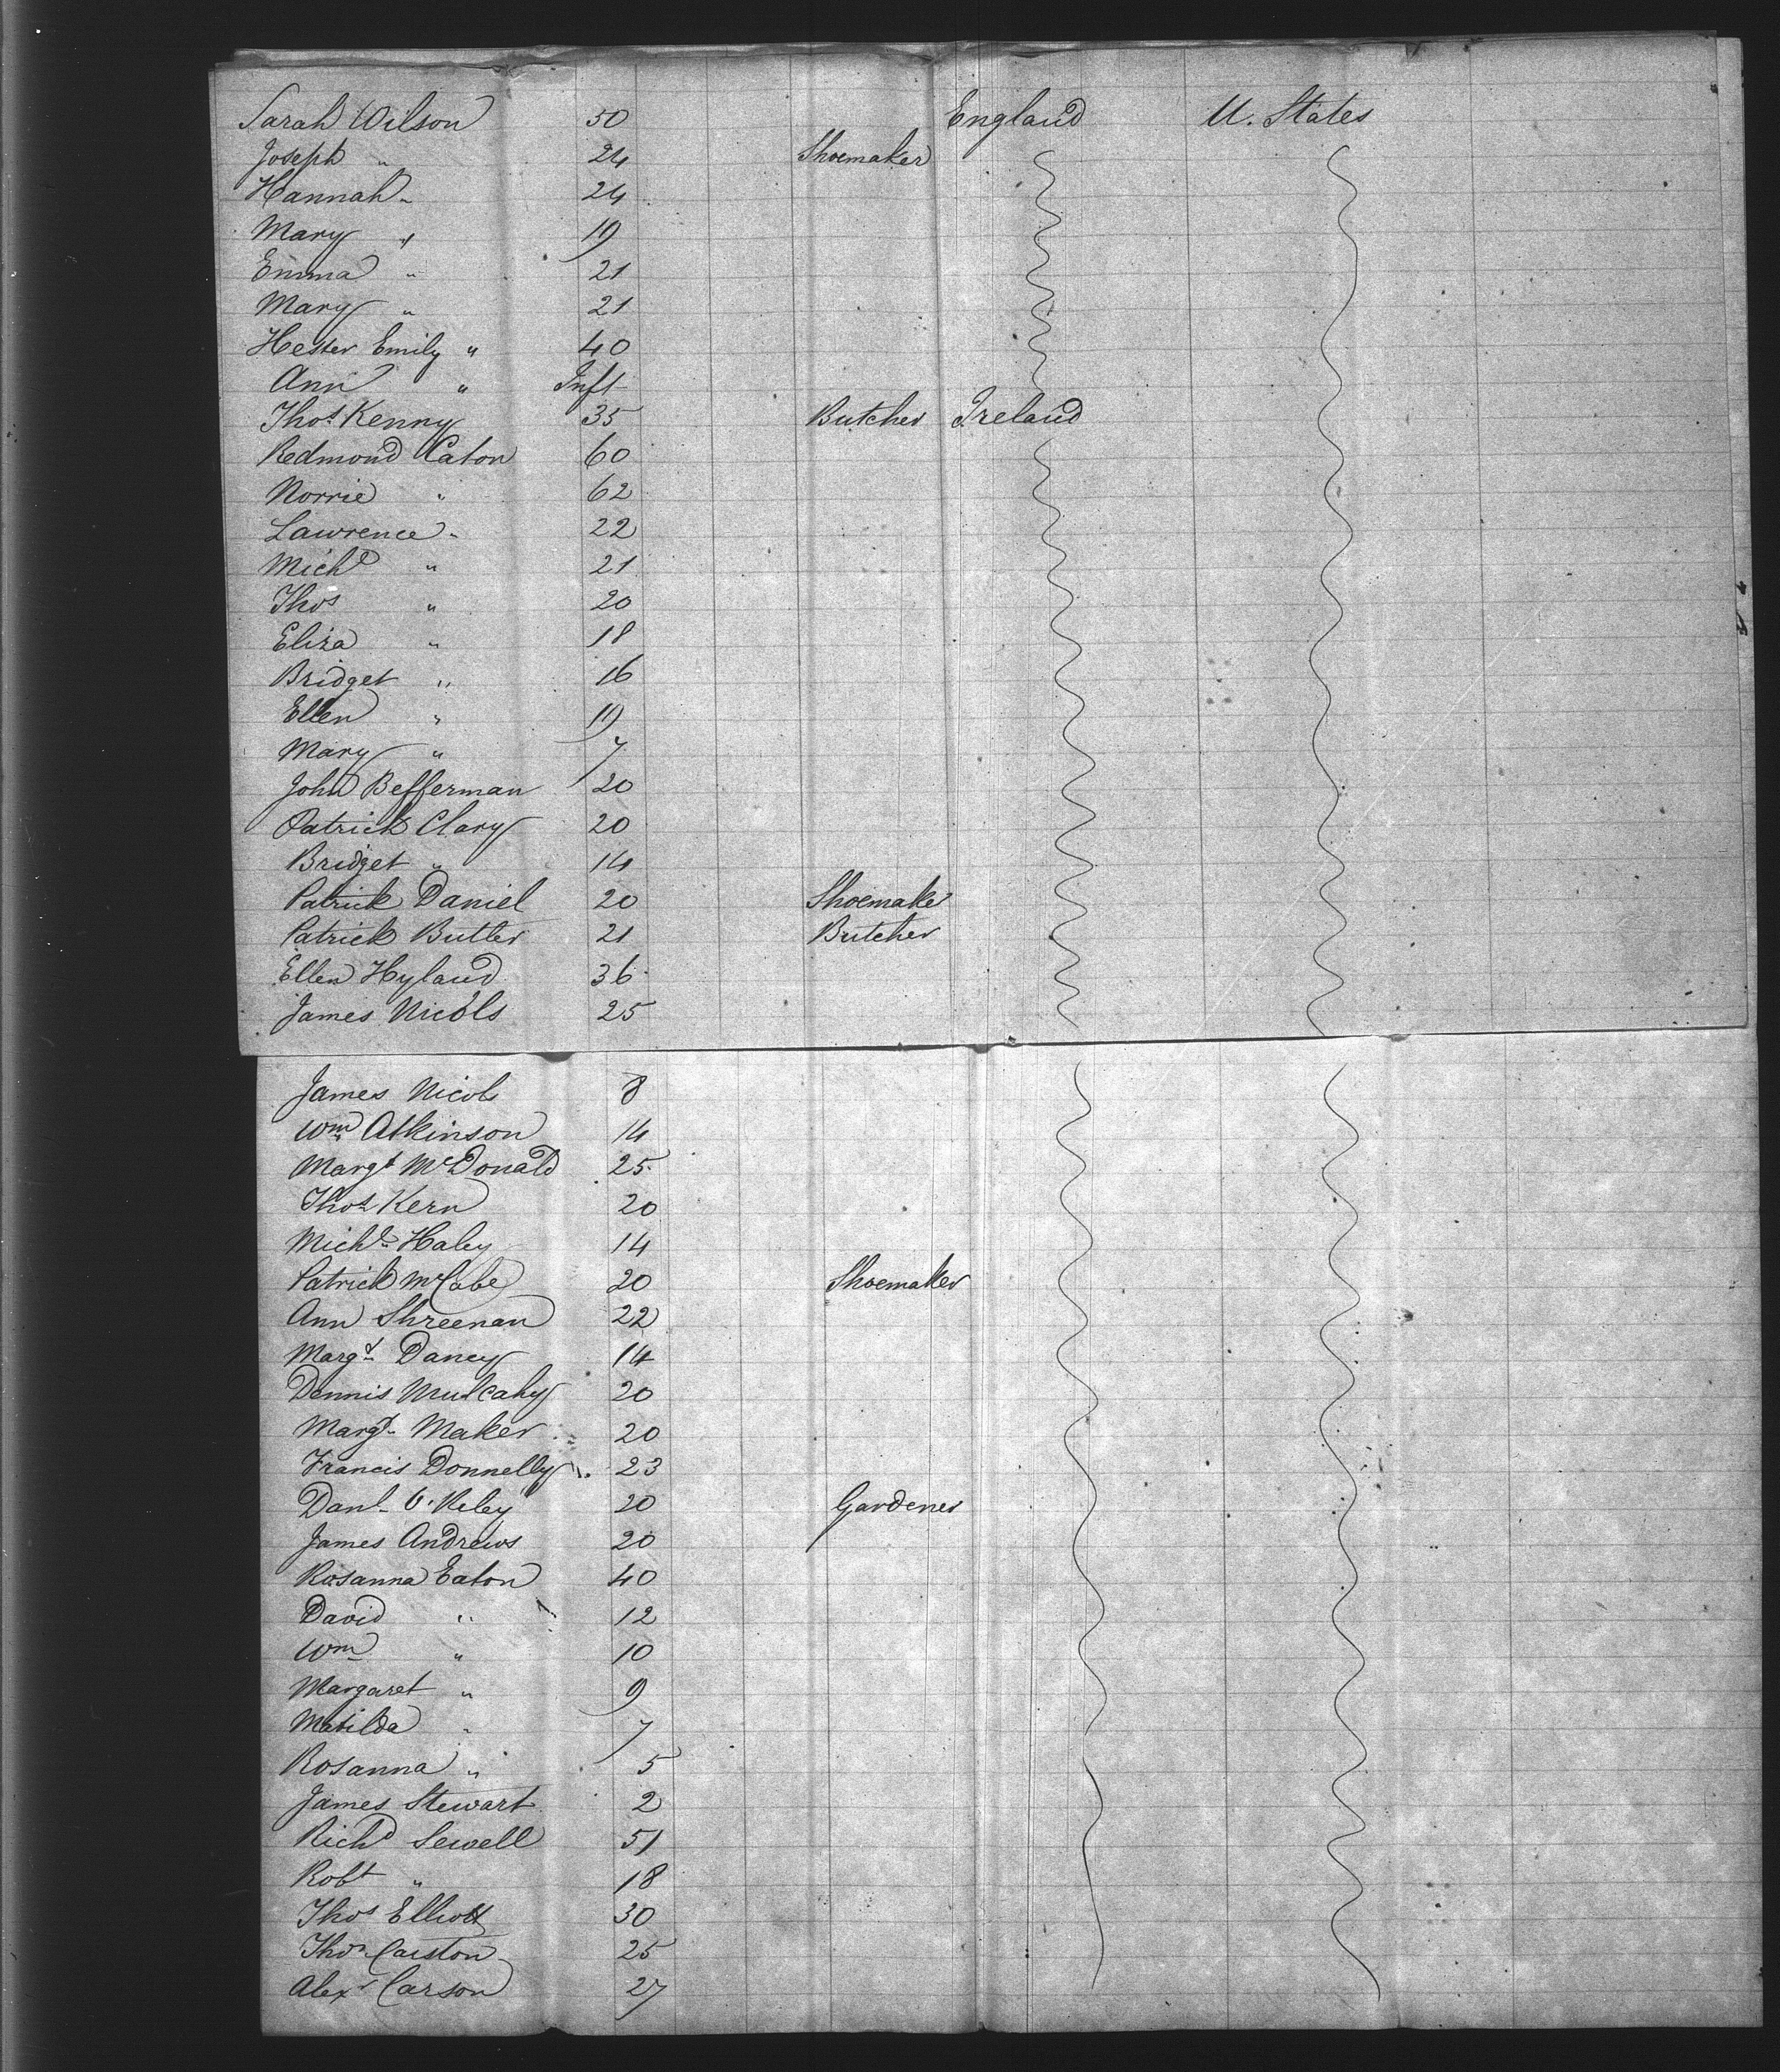 Sarah Wilson 50 England U. States
Joseph " 24 Shoemaker
Hannah " 24
Mary " 19
Emma " 21
Mary " 21
Hester Emily " 40
Ann " Inft
Thos Kenny 35 Butcher Ireland
Redmond Caton 60
Norrie " 62
Lawrence " 22
Michl " 21
Thos " 20
Eliza " 18
Bridget " 16
Ellen " 19
Mary " 7
John Befferman 20
Patrick Clary 20
Bridget " 14
Patrick Daniel 20 Shoemaker
Patrick Butler 21 Butcher
Ellen Hyland 36
James Nicols 25
James Nicols 8
Wm Atkinson 14
Margt McDonald 25
Thos Kern 20
Michl Haley 14
Patrick McCabe 20 Shoemaker
Ann Shreenan 22
Margt Dancy 14
Dennis Mulcahy 20
Margt Maker 20
Francis Donnelly 23
Danl O'Reley 20 Gardener
James Andrews 20
Rosanna Eaton 40
David " 12
Wm " 10
Margaret " 9
Matilda " 7
Rosanna " 5
James Stewart 2
Richd Sewell 51
Robt " 18
Thos Elliott 30
Thos Carston 25
Alexr Carson 27